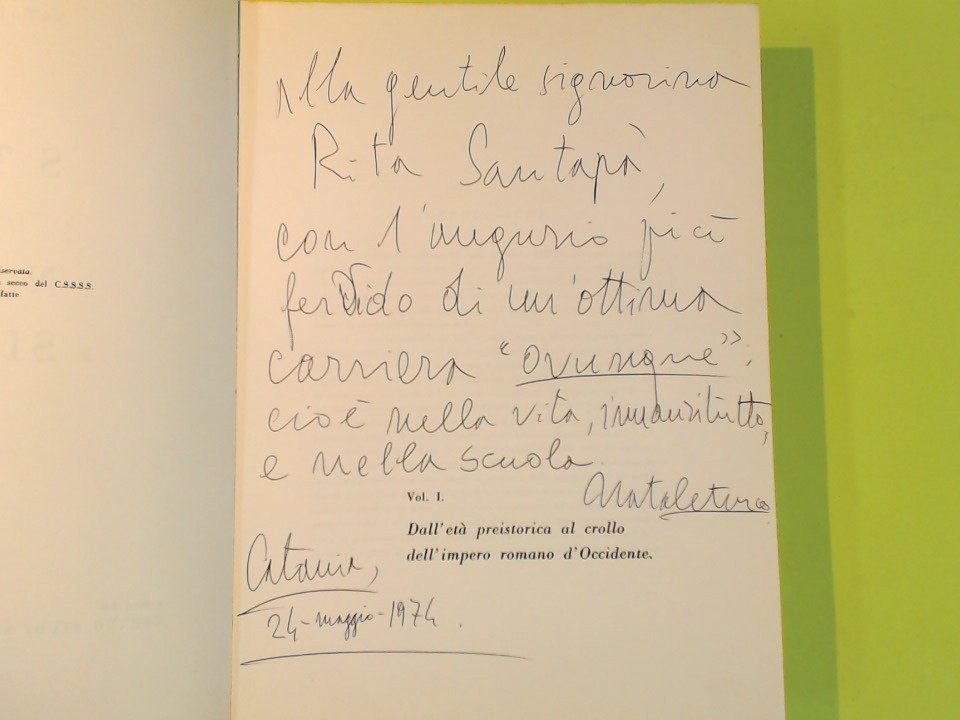 servata.
secco del C.S.S.S.S.
fatte
Alla gentile signorina
Rita Santapà,
con l'augurio più
fervido di un'ottima
carriera “ovunque”:
cioè nella vita, innanzitutto,
e nella scuola.
Natale Turco
Vol. I.
Dall'età preistorica al crollo
dell'impero romano d'Occidente.
Catania,
24-maggio-1974.